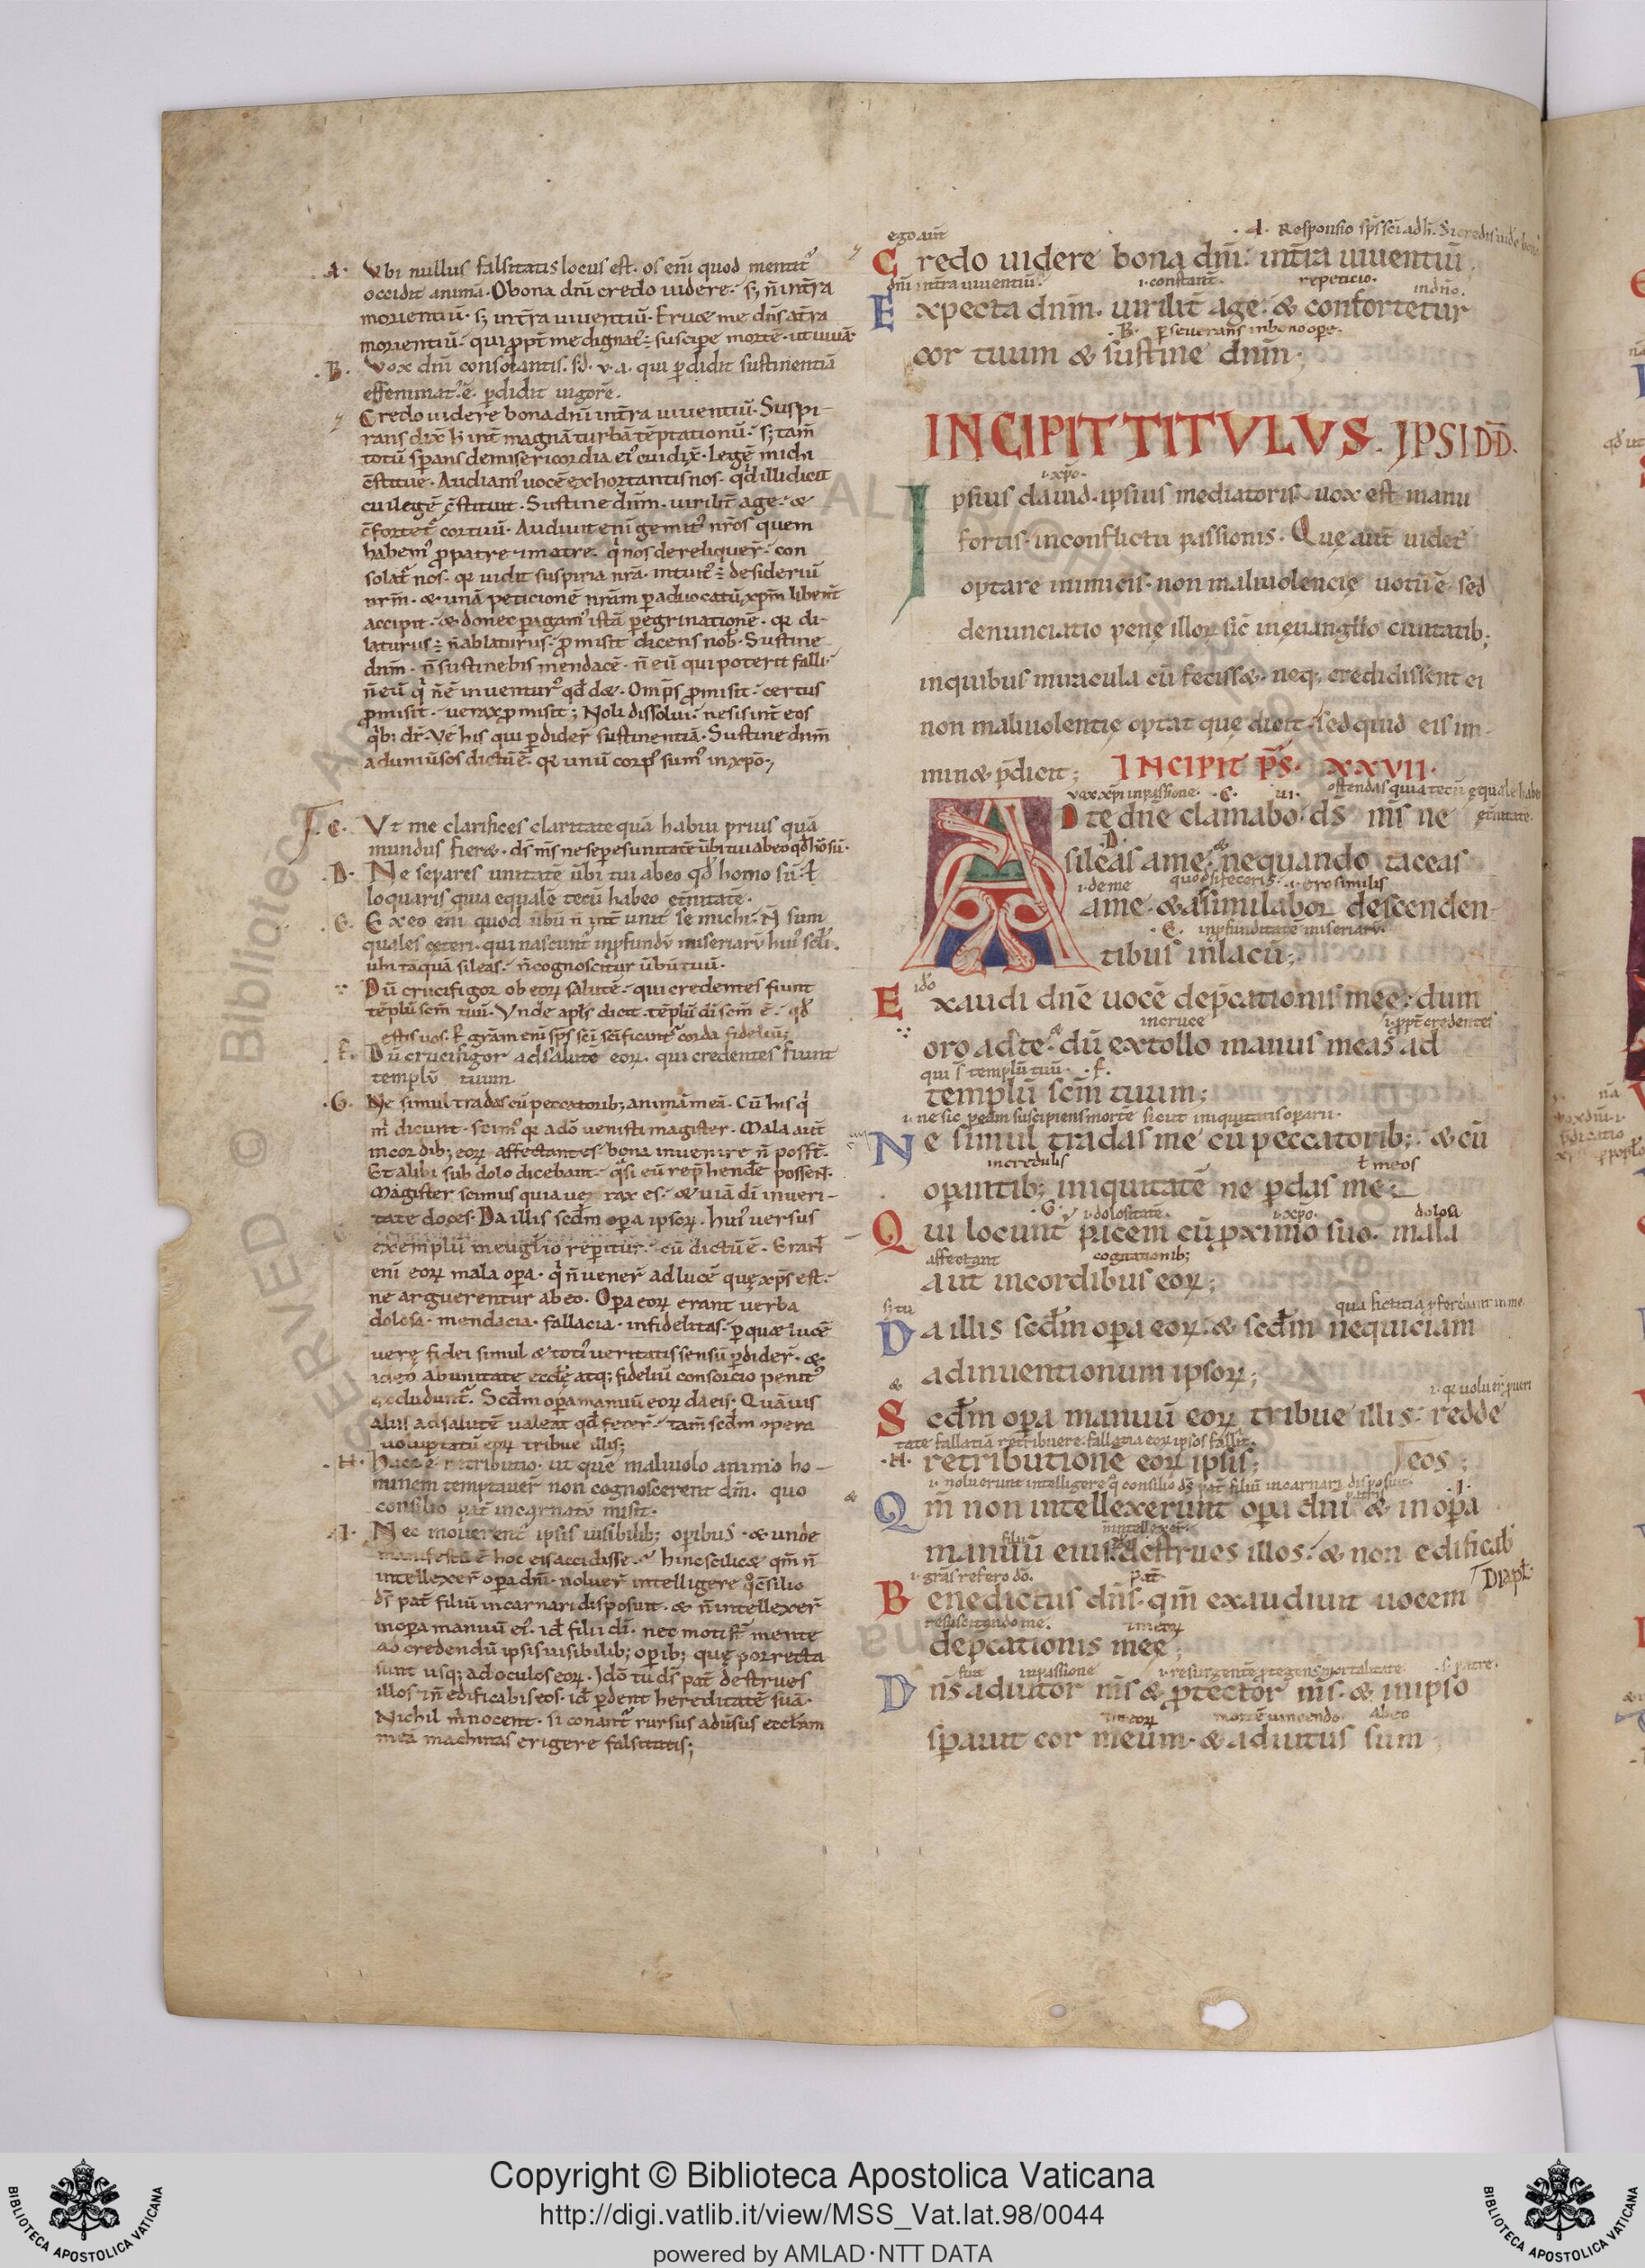 .A. Vbi nullus falsitatis locus est. os eni quod mentit᷒
occidit animā. O bona dnī credo uidere. s; n̄ int̄ra
morientiū. s; int̄ra uiuentiū. Eruæ me dn̄s at̄ra
morientiū. qui ꝓpt̄ me dignat᷒ ÷ suscipe mortē. ut uiuā.
.B. Vox dnī consolantis. sd̄. v. a. qui ꝑdidit sustinentiā
effeminat᷒. ē. ꝑdidit uigorē.
Credo uidere bona dnī int̄ra uiuentiū. Suspi-
rans dix̄ h̄ int̄ magnā turbā tēptationū. s; tam̄
totū sꝑans de misericordia ei᷒ cui dix̄. Legē michi
c̄stitue. Audiam᷒ uocē exhortantis nos. qd̄ illi dicat
cui legē c̄stituit. Sustine dnm̄. uirilit̄ age. &
c̄fortet᷒ cor tuū. Audiuit eni gemit᷒ nr̄os quem
habem᷒ ꝓ patre ꝛ matre. q̇ nos dereliquer̄. con
solat᷒ nos. qꝛ uidit suspiria nrā. intuit᷒ ÷ desideriū
nrm̄. & unā peticionē nrām ꝑ aduocatū xp̄m libent̄
accipit. & donec ꝑagam᷒ istā ꝑegrinationē. qꝛ di-
laturus ÷ n̄ ablaturus. ꝓmisit dicens nob̄. Sustine
dnm̄. n̄ sustinebis mendacē. n̄ eū qui poterit falli.
n̄ eū q̇ n̄ ē inuentur᷒ qd̄ dæ. Omp̄s ꝓmisit. certus
ꝓmisit. uerax ꝓmisit; Noli dissolui. ne sis int̄ eos
q̇b; dr̄. Vę his qui ꝑdider̄ sustinentiā. Sustine dnm̄
ad uniūsos dictū ē. qꝛ unū corp᷒ sum᷒ in xp̄o.
.C. Vt me clarifices claritate quā habui prius quā
mundus fieræ. ds̄ ms̄ ne seꝑes unitatē ūbi tui a beo qd̄ hō sū.
.D. Ne separes unitatē ūbi tui abeo qd̄ homo sū. ł
loquaris quia equalē tecū habeo et̄nitatē.
.E. Ex eo eni quod ūbū n̄ int̄ unit se michi. N̄ sum
quales ceteri. qui nascunt᷒ in ꝓfundū miseriarū hui᷒ scl̄i.
ubi tāquā sileas. n̄ cognoscitur ūbū tuū.
Dū crucifigor ob eoꝝ salutē. qui credentes fiunt
tēplū scm̄ tuū. Vnde apl̄s dicit. tēplū dī scm̄ ē. qd̄
estis uos. ꝑ grām eni sp̄s scī scīficant᷒ corda fideliū;
.F. Dū crucifigor ad salutē eoꝝ. qui credentes fiunt
templū tuum.
.G. Ne simul tradas cū peccatorib; animā meā. Cū his q̇
m̄ dicunt. scim᷒ qꝛ a dō uenisti magister. Mala aut̄
in cordib; eoꝝ affectantes. bona inuenire n̄ posst̄.
Et alibi sub dolo dicebant. q̄si eū rep̄hende᷒ possen̄t.
Magister scimus quia uerax es. & uiā dī in ueri-
tate doces. Da illis scdm̄ oꝑa ipsoꝝ. hui᷒ uersus
exemplū in euglīo reperitur. cū dictū ē. Erant
eni eoꝝ mala oꝑa. q̇ n̄ uener̄ ad lucē quę xp̄s est.
ne arguerentur abeo. Oꝑa eoꝝ erant uerba
dolosa. mendacia. fallacia. infidelitas. ꝑ quæ lucē
uerę fidei simul & toti᷒ ueritatis sensū ꝑdider̄. &
ideo ab unitate eccl̄ę atq; fideliū consorcio penit᷒
excludunt᷒. Scdm̄ oꝑa manuū eoꝝ da eis. Quāuis
aliis ad salutē ualeat qd̄ fecer̄. tam̄ scdm̄ opera
uoluptatū eoꝝ tribue illis;
.H. Hæc ē retributio. ut que maliuolo animo ho-
minem temptauer̄ non cognoscerent dm̄. quo
consilio pat̄ incarnatū misit.
.I. Nec mouerent᷒ ipsis uisibilib; oꝑibus. & unde
manifestū ē hoc eis accidisse. Hinc scilicæ qm̄ n̄
intellexer̄ oꝑa dnī. noluer̄ intelligere qͦ c̄silio
ds̄ pat̄ filiū incarnari disposuit. & n̄ intellexer̄
in oꝑa manuū ei᷒. id̄ filii dī. nec moti st̄ mente
ad credendū ipsis uisibilib; oꝑib; quę porrecta
sunt usq; ad oculos eoꝝ. Idō tu ds̄ pat̄ destrues
illos ꝛ n̄ edificabis eos. id̄ ꝑdent hereditatē suā.
Nichil m̄ nocent. si conant᷒ rursus adūsus eccl̄am
meā machinas erigere falsitatis;
ego aut̄ .A. Responsio sp̄s scī ad h̄. Si credis uide
Credo uidere bona dnī. int̄ra uiuentiū.
dnī int̄ra uiuentiū. .i. constant̄. repeticio. in dnō.
Expecta dnm̄. uirilit̄ age. & confortetur
.B. ꝑseuerans in bono oꝑe.
cor tuum & sustine dnm̄;
INCIPIT TITVLVS. IPSI DD̄.
.i. xp̄o.
Ipsius dauid. ipsius mediatoris. uox est manu
fortis. in conflictu passionis. Quę aut̄ uidet᷒
optare inimicis. non maliuolencię uotū ē. sed
denunciatio penę illoꝝ. sic̄ in euanglīo ciuitatib;
in quibus miracula cū fecissæ. neq; credidissent ei
non maliuolentię optat que dicit. sed quid eis im-
minæ p̄dicit; INCIPIT PS̄. XXVII.
vox xp̄i in passione. .C. ostendas quia tecū ęquale habeo
ADte dnē clamabo. ds̄ ms̄ ne et̄nitatē.
.D.
sileas a me. & nequando taceas
.i. de me quod si feceris. .i. ero similis
a me. & assimilabor descenden-
.E. in ꝓfunditatē miseriarū.
tibus in lacū;
ido
Exaudi dnē uocē dep̄cationis meę. dum
in cruce .i. ꝓpt̄ credentes
oro ad te. dū extollo manus meas ad
qui s̄ templū tuū. .F.
templū scm̄ tuum;
.i. ne sic ꝑdam suscipiens mortē sicut iniquitatis oꝑarii.
Ne simul tradas me cū peccatorib; & cū
incredulis ł meos
oꝑantib; iniquitatē ne ꝑdas me.
.G. .i. dolositate. .i. xp̄o. dolosa
Qui locunt᷒ pacem cū ꝓximo suo. mala
affectant cogitationib;
aut in cordibus eoꝝ;
s; tu qua fictitia ꝓferebant in me
Da illis scdm̄ oꝑa eoꝝ. & scdm̄ nequiciam
adinuentionum ipsoꝝ;
& .i. qꝛ uoluer̄
Scdm̄ oꝑa manuū eoꝝ tribue illis. redde
tate fallatiā retribuere. fallatia eoꝝ ipsos fallit.
.H. retributionē eoꝝ ipsis; eos;
.i. noluerunt intelligere qͦ consilio ds̄ pat̄ filiū incarnari disposuit. .I.
& Qm̄ non intellexerunt oꝑa dnī & in oꝑa
filii n̄ intellexer̄
manuū eius. destrues illos. & non edificab̄
.i. grās refero dō. pat̄ Diapt̄.
Benedictus dn̄s. qm̄ exaudiuit uocem
resuscitando me. timeoꝝ
dep̄cationis meę;
fuit in passione .i. resurgentē ꝓtegens mortalitatē. .s. patre.
Dn̄s adiutor ms̄ & ꝓtector ms̄. & in ipso
timeoꝝ mortē uincendo. abeo
sꝑauit cor meum. & adiutus sum
Copyright © Biblioteca Apostolica Vaticana
http://digi.vatlib.it/view/MSS_Vat.lat.98/0044
powered by AMLAD·NTT DATA
BIBLIOTECA APOSTOLICA VATICANA
BIBLIOTECA APOSTOLICA VATICANA